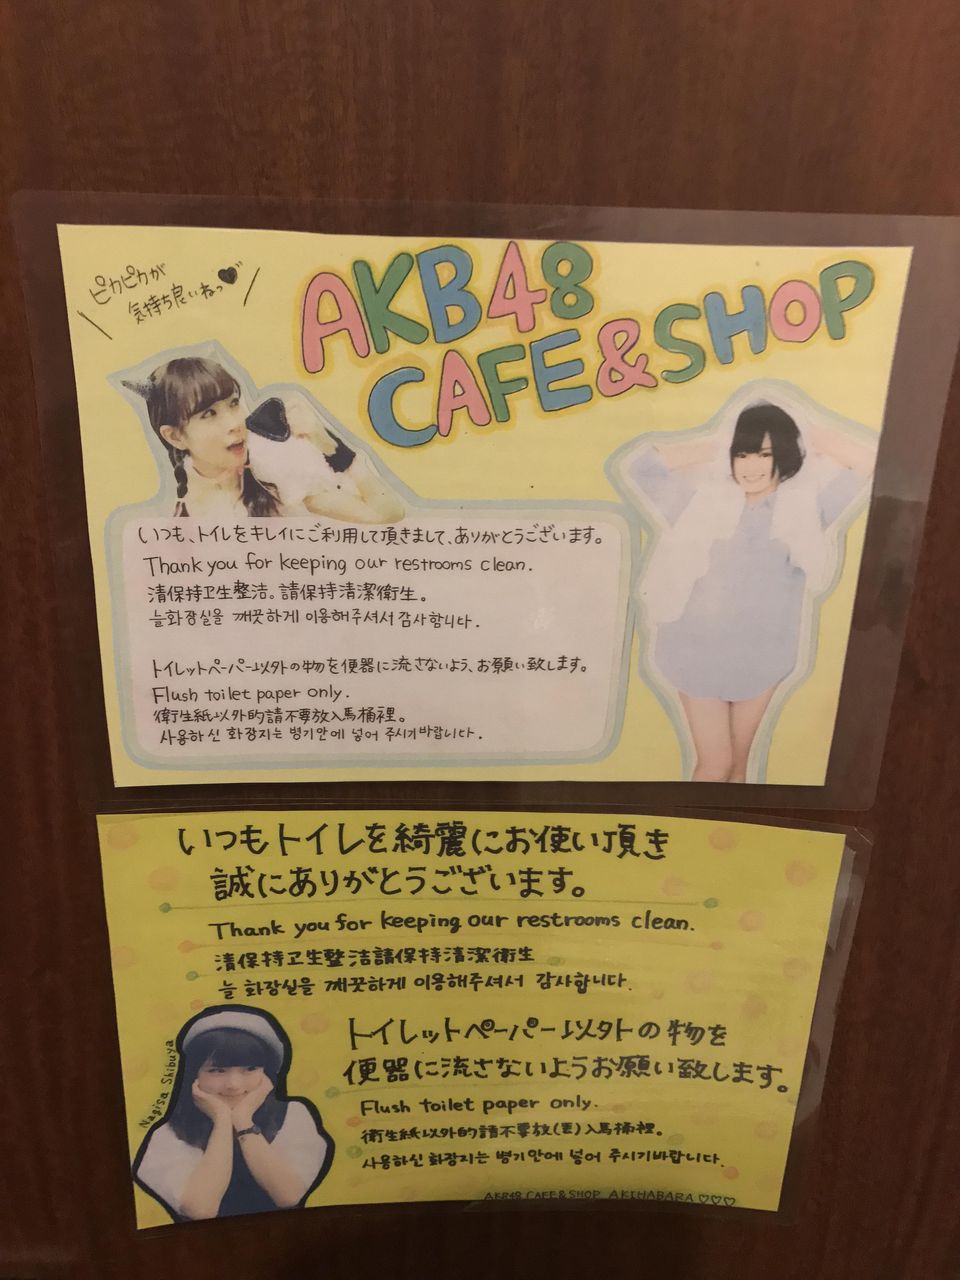 ピカピカが
気持ち良いねっ♥
AKB48
CAFE&SHOP
いつも、トイレをキレイにご利用して頂きまして、ありがとうございます。
Thank you for keeping our restrooms clean.
清保持卫生整洁。請保持清潔衛生。
늘 화장실을 깨끗하게 이용해주셔서 감사합니다.
トイレットペーパー以外の物を便器に流さないよう、お願い致します。
Flush toilet paper only.
衛生紙以外的請不要放入馬桶裡。
사용하신 화장지는 병기안에 넣어 주시기바랍니다.
いつもトイレを綺麗にお使い頂き
誠にありがとうございます。
Thank you for keeping our restrooms clean.
清保持卫生整洁請保持清潔衛生
늘 화장실을 깨끗하게 이용해주셔서 감사합니다.
トイレットペーパー以外の物を
便器に流さないようお願い致します。
Flush toilet paper only.
衛生紙以外的請不要放入馬桶裡。
사용하신 화장지는 병기안에 넣어 주시기바랍니다.
Nagisa Shibuya
AKB48 CAFE&SHOP AKIHABARA ♡♡♡